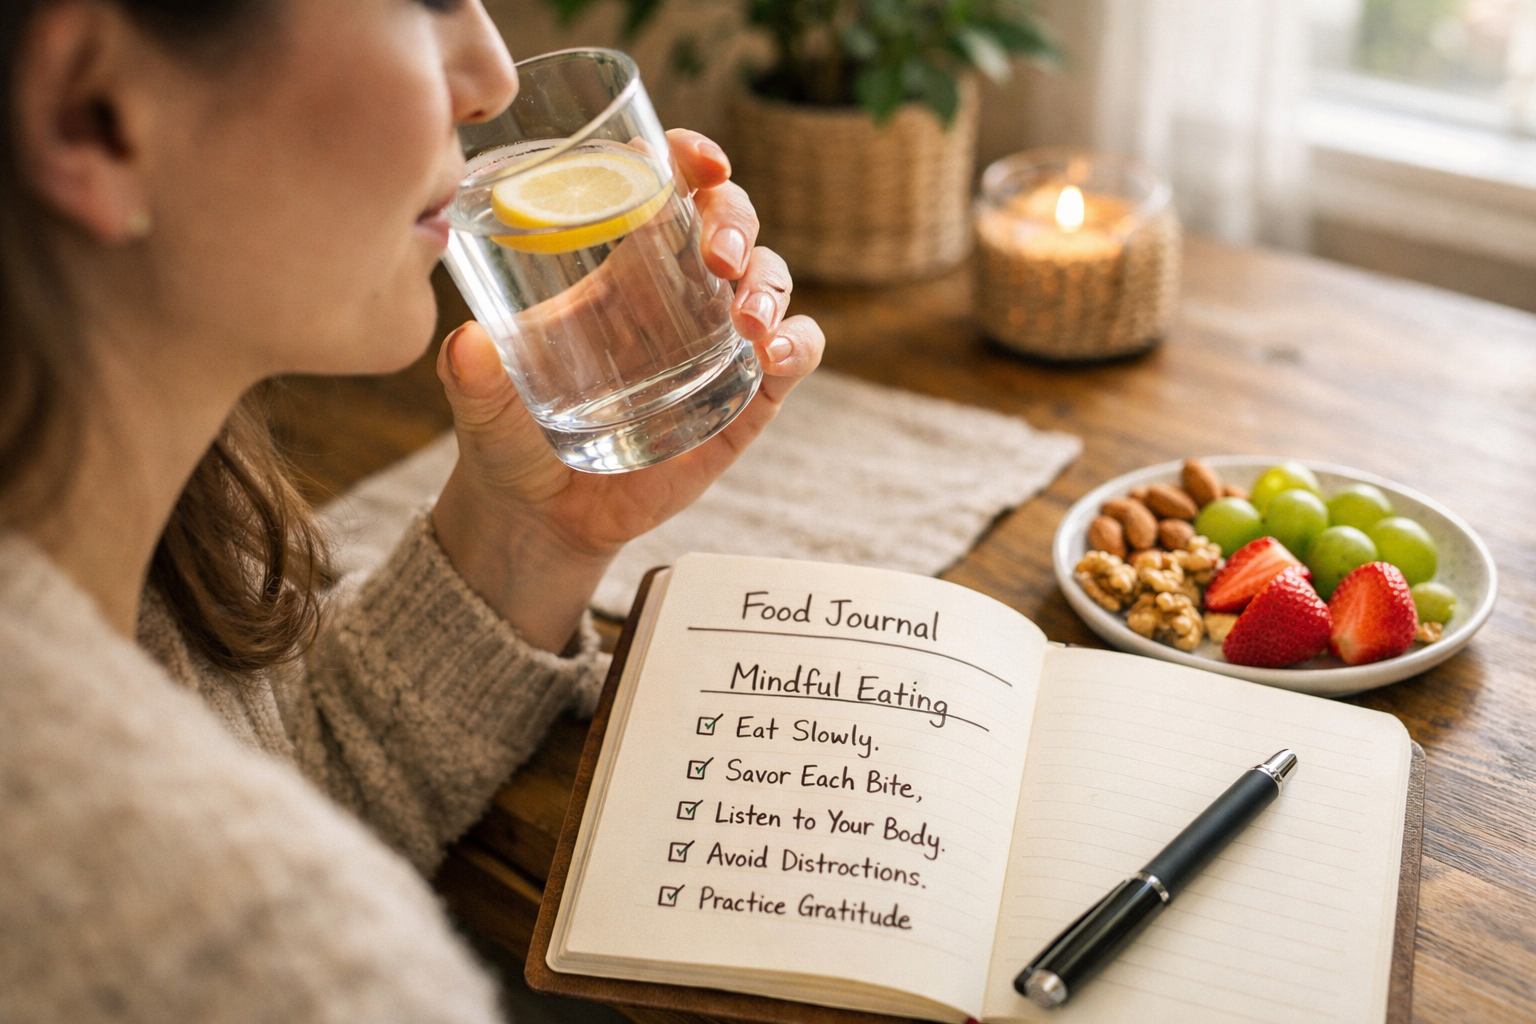 Food Journal
Mindful Eating
Eat Slowly.
Savor Each Bite,
Listen to Your Body.
Avoid Distroctions.
Practice Gratitude